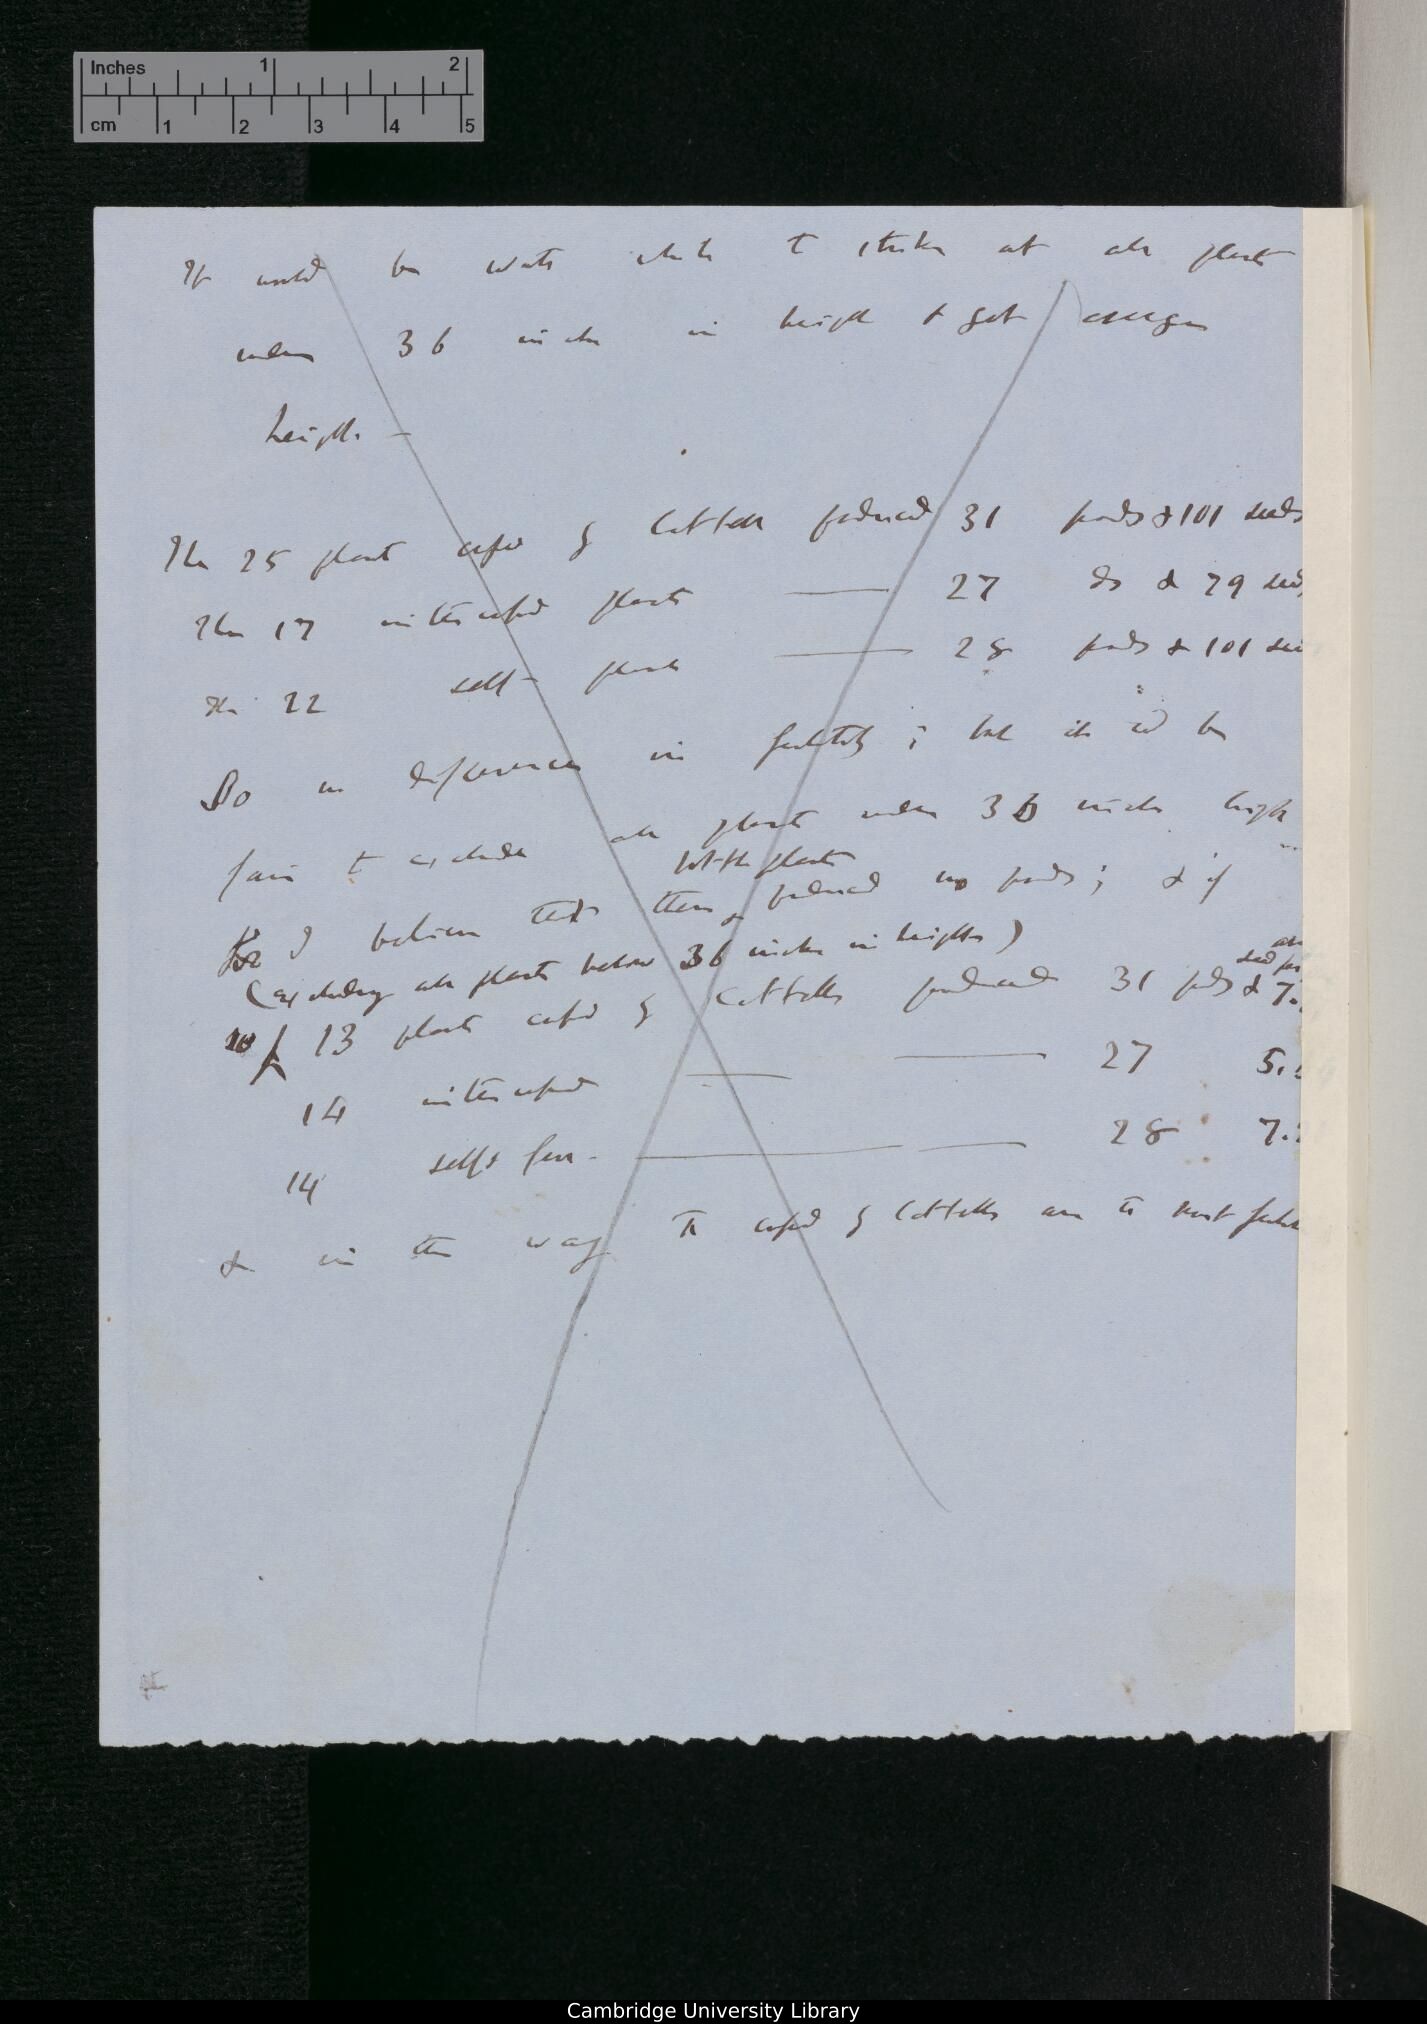 Inches 1 2
cm 1 2 3 4 5
It would be worth while to strike out all plants
under 36 inches in height & get average
height. —
The 25 plants crossed by Cattell produced 31 pods & 101 seeds
The 17 intercrossed plants —— 27 do & 79 seeds
The 22 self- plants —— 28 pods & 101 seeds
So no difference in fertility; but it wd be
fair to exclude all plants under 36 inches high
little plants
for I believe that these produced no pods; & if
(excluding all plants below 36 inches in height)
so / 13 plants crossed by Cattells produced 31 pods & 7.
seed per
14 intercrossed —— —— 27 5.
14 selfs fer. —— —— 28 7.2
& in this way The crossed by Cattells are the most
Cambridge University Library